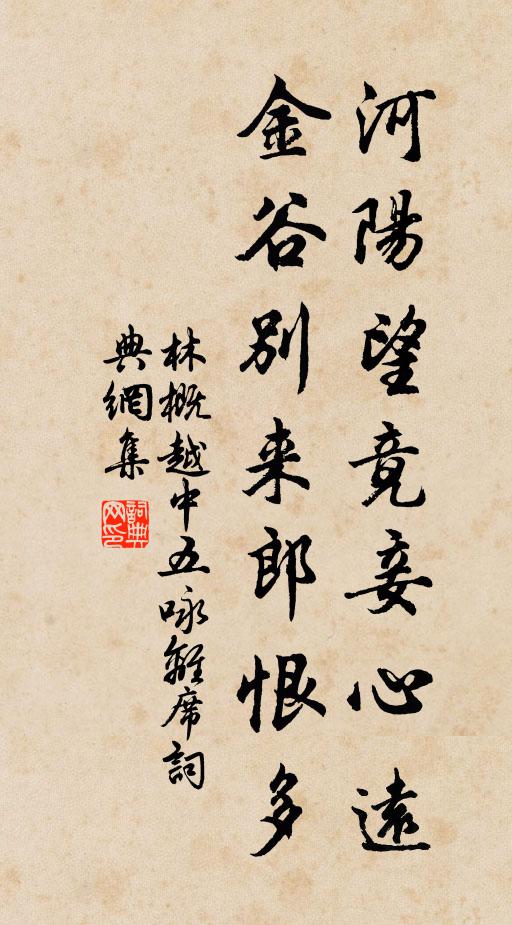 河陽望竟妾心遠
金谷别来郎恨多
林概越中五咏離席詞
典網集
詞典
网印